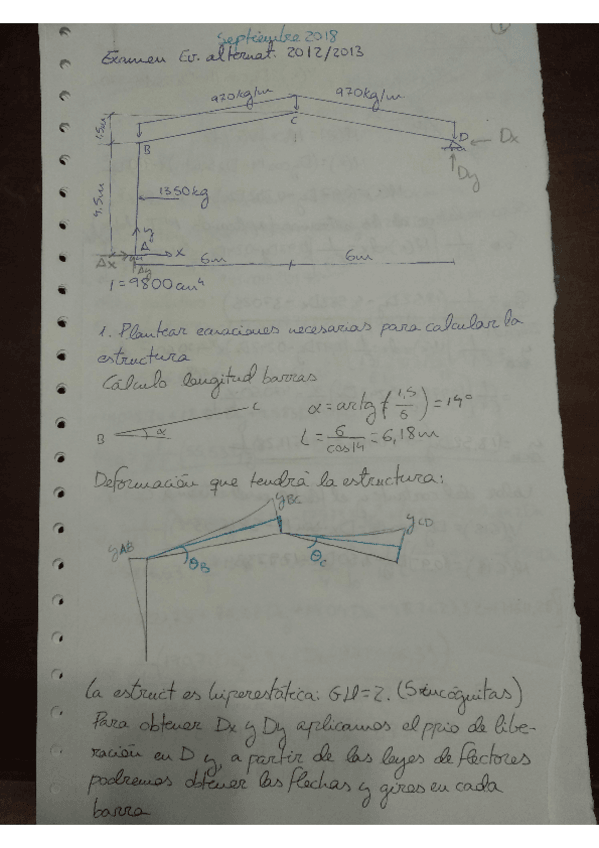 Septiembre 2018
Examen Ev. alternat. 2012/2013
970kg/m
970kg/m
C
B
D
Dx
Dy
1,5m
4,5m
1350kg
y
A
x
Ax
Ay
6m
6m
I=9800cm⁴
1. Plantear ecuaciones necesarias para calcular la
estructura
Cálculo longitud barras
B
C
α
α = artg(1,5/6) = 14°
L = 6/cos14 = 6,18m
Deformación que tendrá la estructura:
yBC
yCD
yAB
θB
θC
La estruct es hiperestática: GH=2. (5 incógnitas)
Para obtener Dx y Dy aplicamos el ppio de libe-
ración en D y, a partir de las leyes de flectores
podremos obtener las flechas y giros en cada
barra